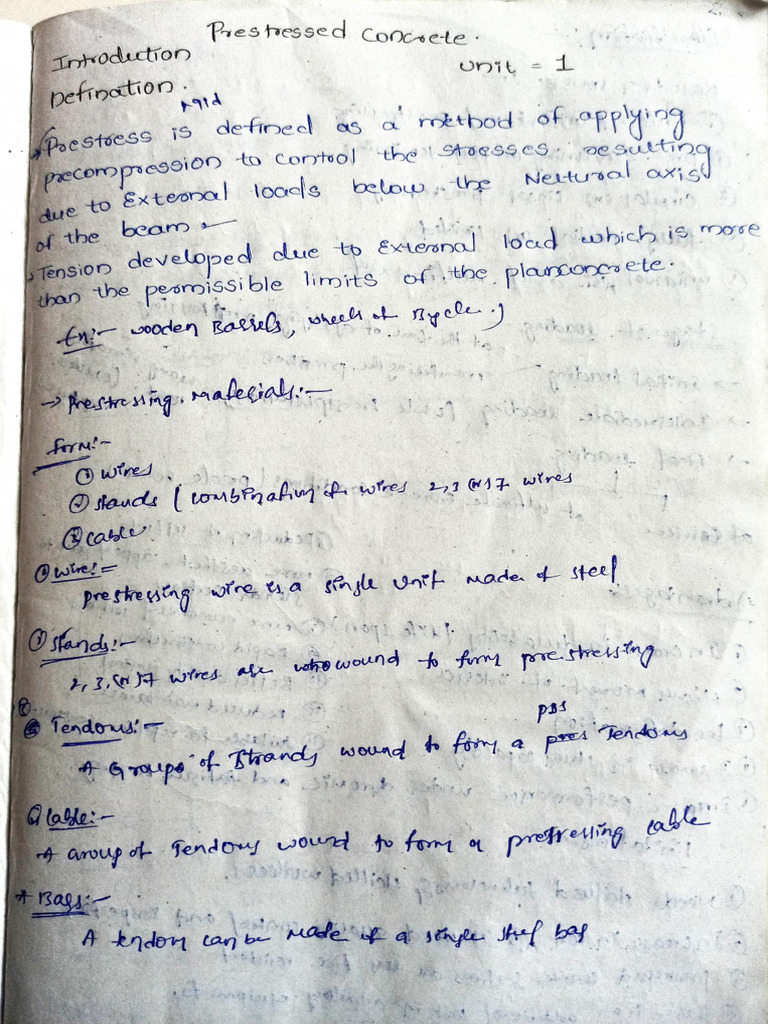 Prestressed Concrete.
Introduction
Unit = 1
Defination.
Prestress is defined as a method of applying
precompression to control the stresses resulting
due to External loads below the Neutural axis
of the beam
Tension developed due to External load which is more
than the permissible limits of the planconcrete.
Ex:- wooden Barrels, wheels of Bycle.
→ Prestressing. Materials:-
form:-
① wires
② stands (combination of wires 2,3 (or) 7 wires
③ cable
① wire:=
prestressing wire is a single unit made of steel
① Stands:-
2, 3, (or) 7 wires are wound to form prestressing
Tendons:-
A Groups of Strands wound to form a pres Tendons
Cable:-
A Group of Tendons wound to form a prestressing cable
* Bars:-
A tendon can be made of a single steel bar